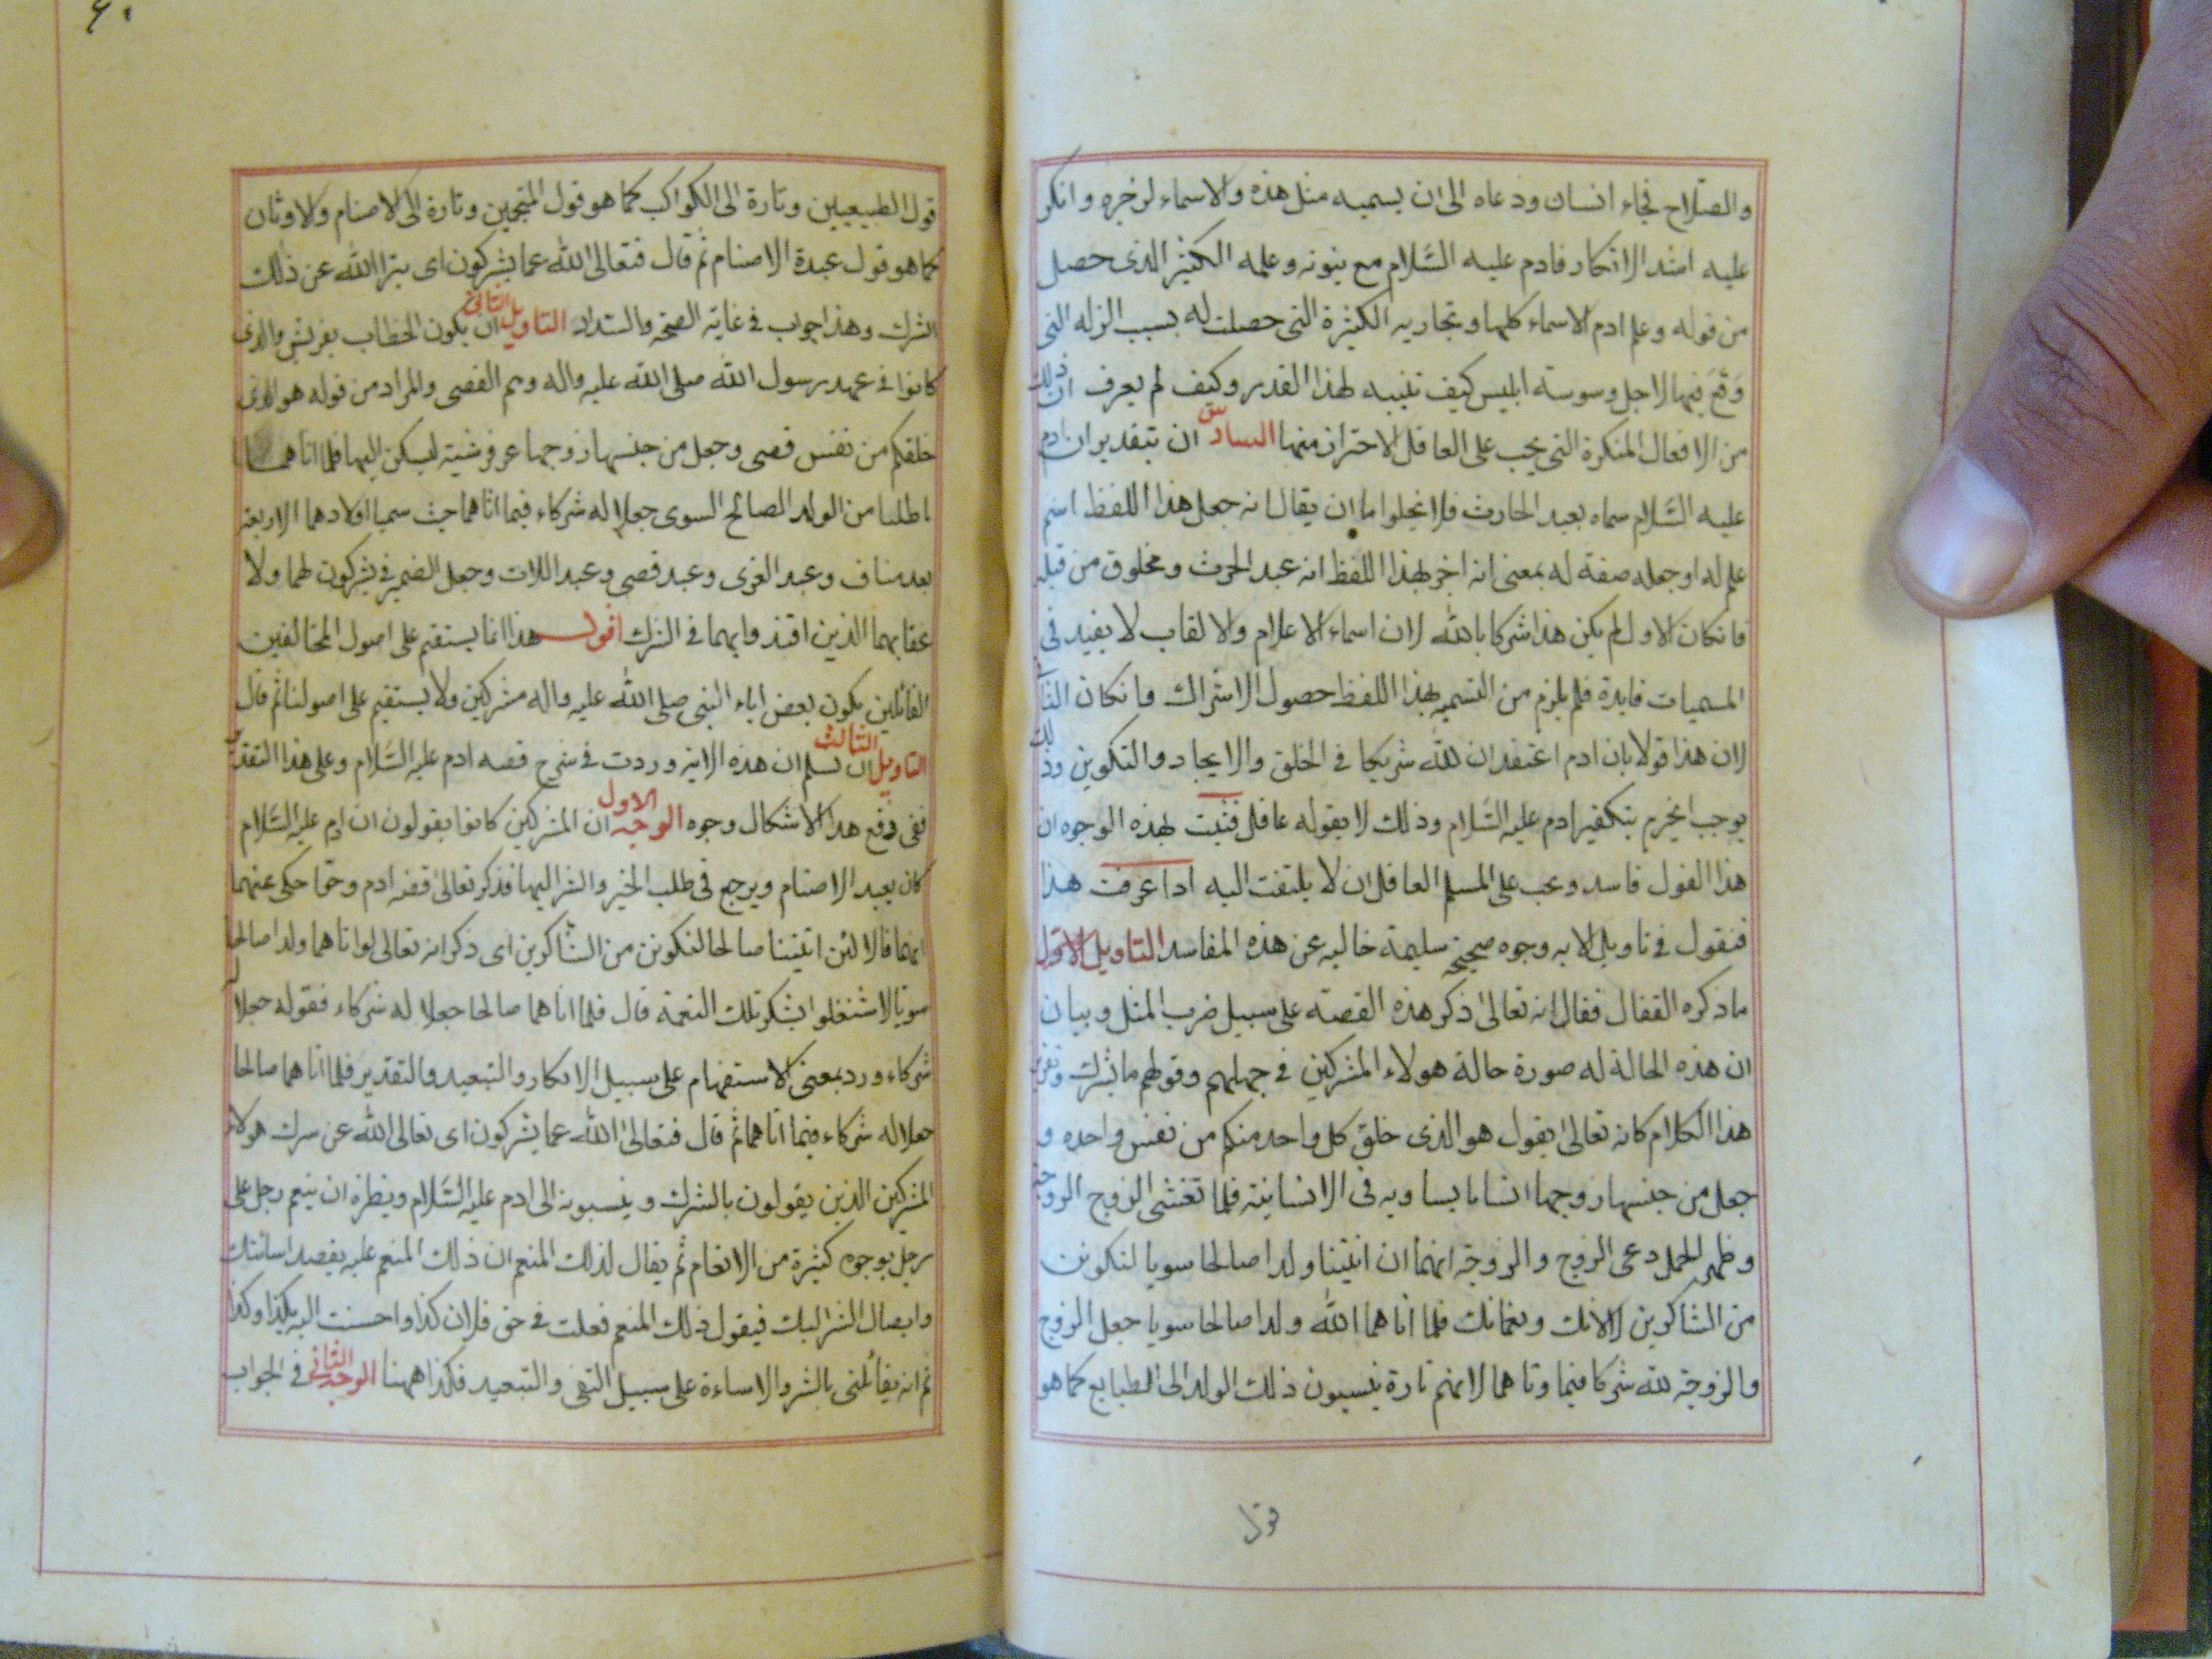 والصلاح فجاء انسان ودعاه الى ان يسميه مثل هذه والاسماء لزجره وانكر
عليه اشد الانكار فادم عليه السَّلام مع نبوته وعلمه الكثير الذى حصل
من قوله وعلم ادم الاسماء كلها وتجاربه الكثيرة التى حصلت له بسبب الزله التى
وَقَعَ فيها لاجل وسوسته ابليس كيف تنبيه لهذا القدر وكيف لم يعرف ان ذلك
من الافعال المنكرة التى يجب على العاقل الاحتراز منها السادس ان تبقدير ان ادم
عليه السَّلام سماه بعبد الحارث فلا يخلوا ما ان يقال انه جعل هذا اللفظ اسم
علم له او جعله صفة له بمعنى انه اخبر بهذا اللفظ انه عبد الحرث ومخلوق من قبله
فانكان الاول لم يكن هذا شركا بالله لان اسماء الاعلام والالقاب لا يفيد فى
المسميات فايدة فلم يلزم من التسميه بهذا اللفظ حصول الاشراك وانكان الثا
لان هذا قولا بان ادم اعتقد ان لله شريكا فى الخلق والايجاد والتكوين وذلك
يوجب الجزم بتكفير ادم عليه السَّلام وذلك لا يقوله عاقل فثبت بهذه الوجوه ان
هذا القول فاسد ويجب على المسلم العاقل ان لا يلتفت اليه اذا عرفت هذا
فنقول فى تاويل الايه وجوه صحيحة سليمة خاليه عن هذه المفاسد التاويل الاول
ما ذكره القفال فقال انه تعالى ذكر هذه القصه على سبيل ضرب المثل وبيان
ان هذه الحالة له صورة حالة هولاء المشركين فى جهلهم وقولهم ما بشرك وتقرير
هذا الكلام كانه تعالى يقول هو الذى خلق كل واحد منكم من نفس واحده و
جعل من جنسها زوجها انسانا يساويه فى الانسانية فلما تغشى الزوج الزوجة
وظهر الحمل دعى الزوج والزوجة انهما ان اتيتنا ولدا صالحا سويا لنكونن
من الشاكرين لالائك ونعمائك فلما اتاهما الله ولدا صالحا سويا جعل الزوج
والزوجة لله شركا فيما وتاهما لانهم تارة ينسبون ذلك الولد الى الطبايع كما هو
قول
قول الطبيعيين وتارة الى الكواكب كما هو قول المنجمين وتارة الى الاصنام والاوثان
كما هو قول عبدة الاصنام ثم قال فتعالى الله عما يشركون اى تبرا الله عن ذلك
الشرك وهذا جواب فى غاية الصحة والسداد التاويل الثانى ان يكون الخطاب بقريش والذى
كانوا فى عهد رسول الله صلى الله عليه واله وهم القصى والمراد من قوله هو الذى
خلقكم من نفس قصى وجعل من جنسها زوجها عر وشية ليسكن اليها فلما اتاهما
ما طلبا من الولد الصالح السوى جعلا له شركاء فيما اتاهما حيث سميا اولادهما الاربعة
بعد مناف وعبد العزى وعبد قصى وعبد اللات وجعل الضمير فى يشركون لهما ولا
عقابهما الذين اقتدوا بهما فى الشرك اقول هذا انما يستقيم على اصول المخالفين
القائلين بكون بعض اباء النبى صلى الله عليه واله مشركين ولا يستقيم على اصولنا ثم قال
التاويل الثالث ان نسلم ان هذه الاية وردت فى شرح قصه ادم عليه السَّلام وعلى هذا التقدير
ففى دفع هذا الاشكال وجوه الوجه الاول ان المشركين كانوا يقولون ان ادم عليه السَّلام
كان يعبد الاصنام ويرجع فى طلب الخير والشر اليها فذكر تعالى قصه ادم وحوا حكى عنهما
انهما قالا لئن اتيتنا صالحا لنكونن من الشاكرين اى ذكر انه تعالى لو اتاهما ولدا صالحا
سويا لاشتغلوا بشكر تلك النعمة قال فلما اتاهما صالحا جعلا له شركاء فقوله جعلا له
شركاء ورد بمعنى الاستفهام على سبيل الانكار والتبعيد والتقدير فلما اتاهما صالحا
جعلا له شركاء فيما اتاهما ثم قال فتعالى الله عما يشركون اى تعالى الله عن شرك هولاء
المشركين الذين يقولون بالشرك وينسبونه الى ادم عليه السَّلام ونظيره ان ينعم رجل على
رجل بوجوه كثيرة من الانعام ثم يقال لذلك المنعم ان ذلك المنعم عليه يقصد اسائتك
وايصال الشر اليك فيقول ذلك المنعم فعلت فى حق فلان كذا واحسنت اليه بكذا وكذا
ثم انه يقابلنى بالشر والاساءة على سبيل النفى والتبعيد فكذا ههنا الوجه الثانى فى الجواب